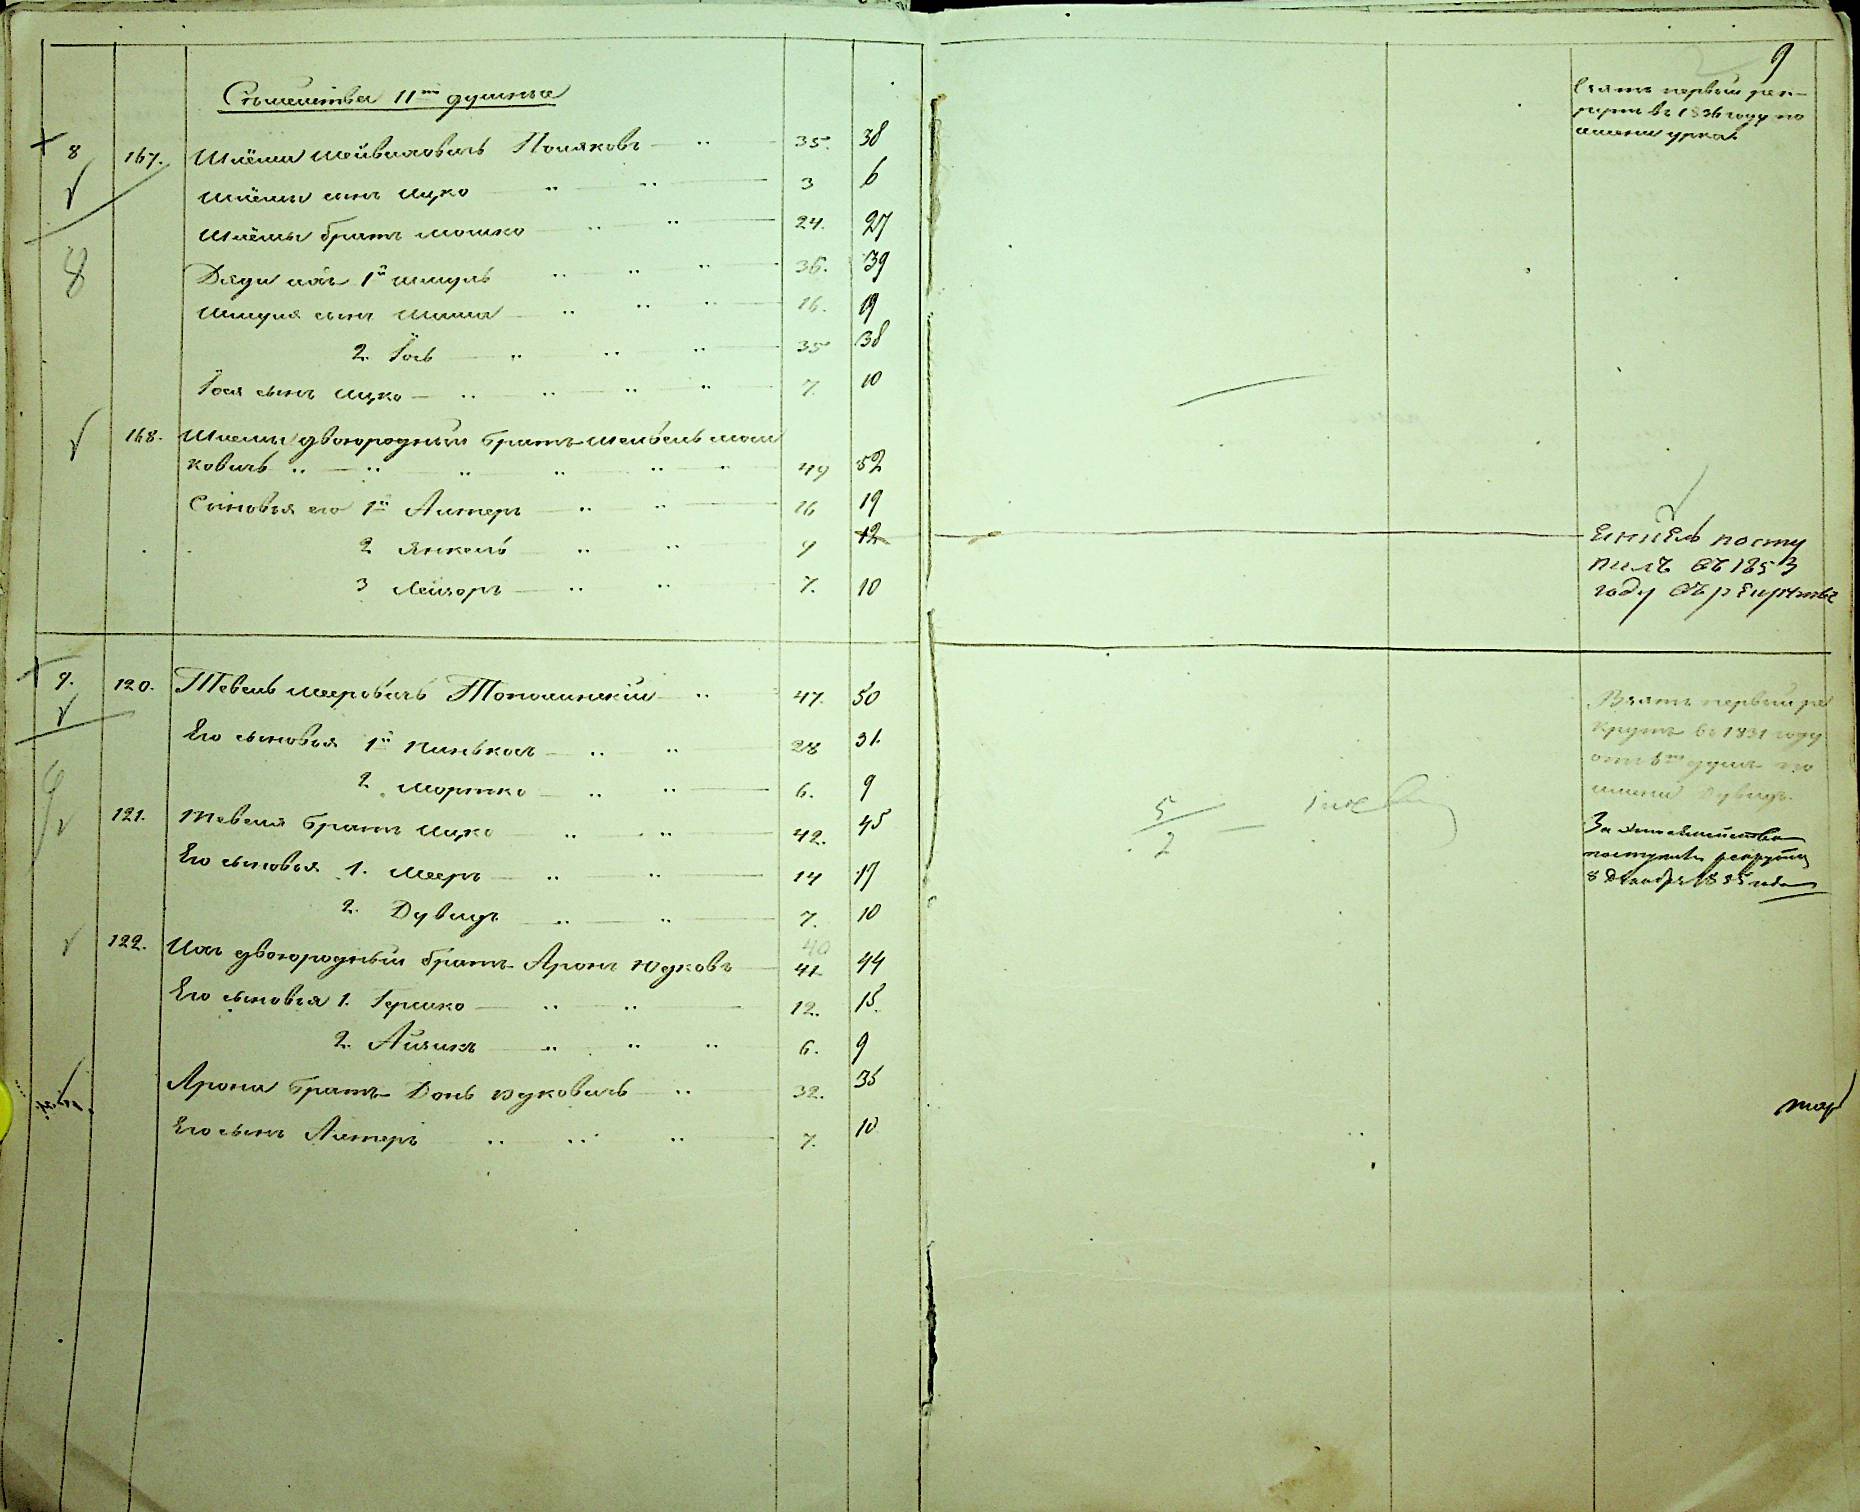 Съмейства 11ти душныя
8 167. Шлёма Лейвиковичь Поляковъ 35. 38
Шлёмы сынъ Ицко 3 6
Шлёмы братъ Мошко 24. 27
Дяди ихъ 1й Шмуль 36. 39
Шмуля сынъ Шлёма 16. 19
2. Іось 35 38
Іося сынъ Ицко 7. 10
168. Шлемы двоюродный братъ Лейбель Мош
ковичь 49 52
Сыновья его 1й Алтеръ 16 19
2 Янкель 9 12
3 Лейзоръ 7. 10
9. 120. Тевель Мееровичь Тополинскій 47. 50
Его сыновья 1й Пинькасъ 28 31.
2. Мортко 6. 9
121. Тевеля братъ Ицко 42. 45
Его сыновья 1. Мееръ 14 17
2. Дувидъ 7. 10
40
122. Ихъ двоюродный братъ Аронъ Юдковъ 41 44
Его сыновья 1. Гершко 12. 15.
2. Айзикъ 6. 9
Арона братъ Донь Юдковичь 32. 35
Его сынъ Алтеръ 7. 10
9
Взятъ первый рек-
рутъ въ 1836 году по
имени
8
Енкель посту
пилъ въ 1853
году въ рекрутъ
9
Взятъ первый ре
крутъ въ 1831 году
отъ 6ти душъ по
имени Дувидъ.
5
2
За
поступилъ рекрутъ
8 Декабря 1855 года